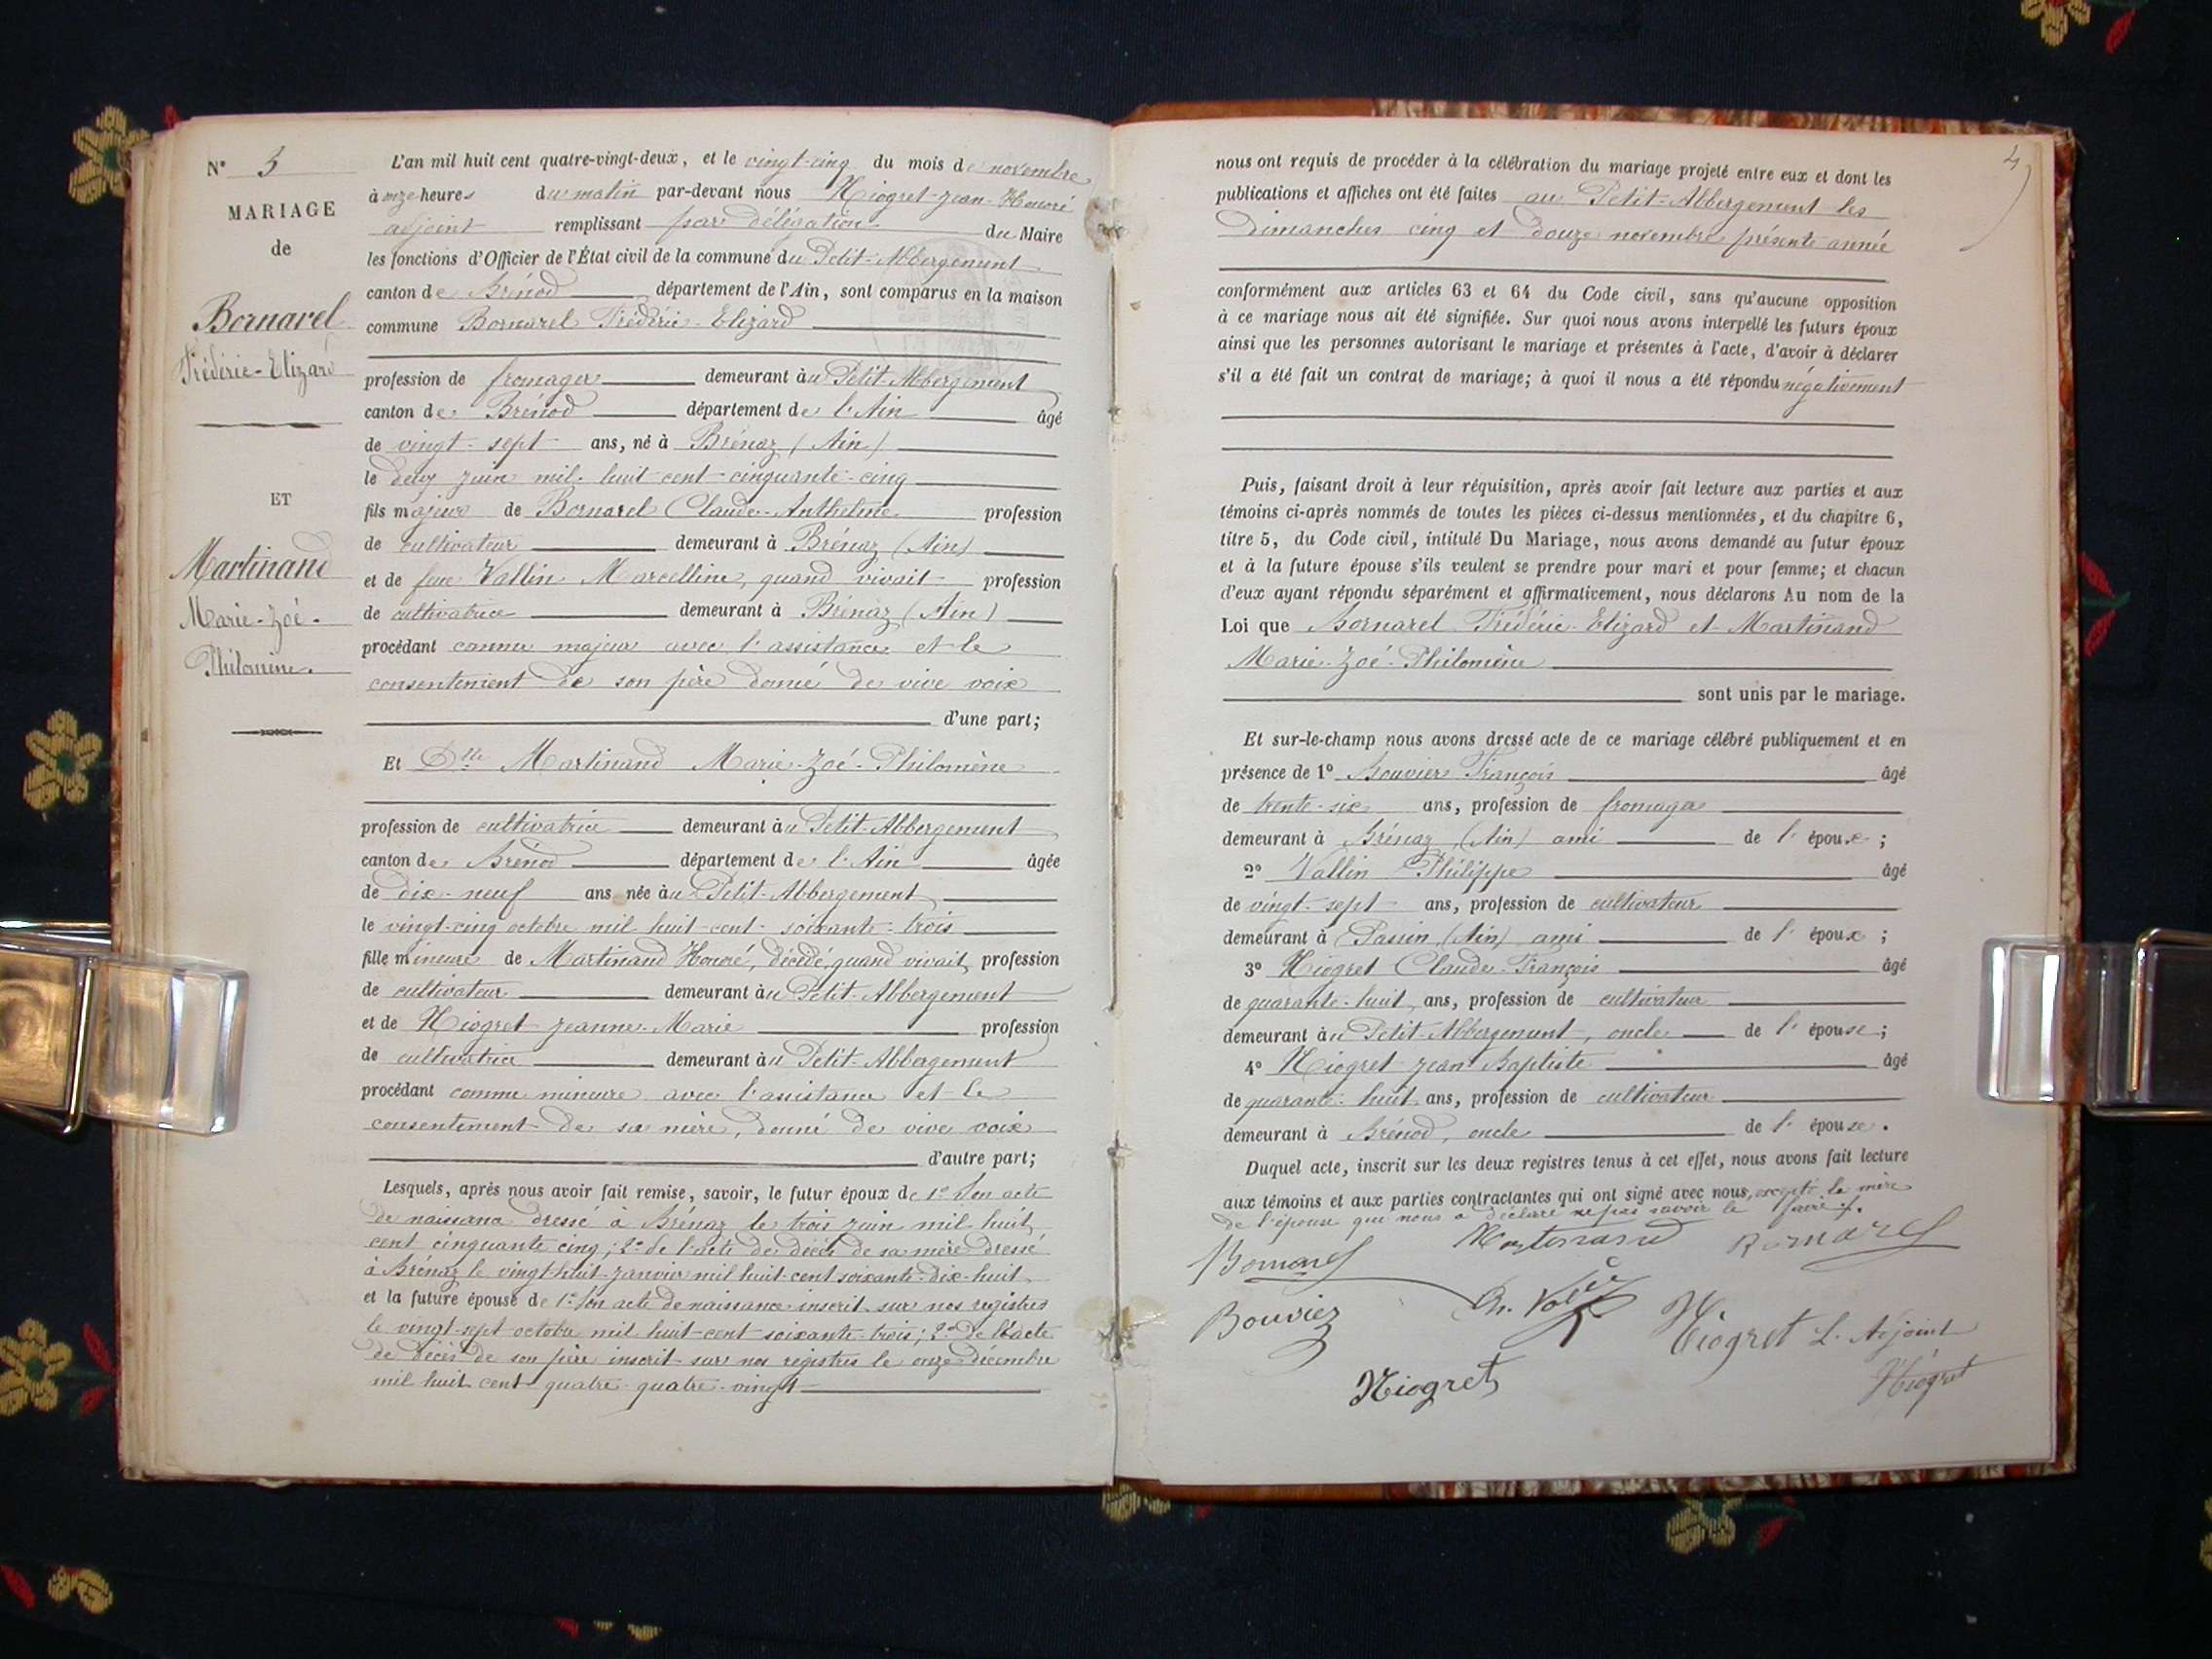 N° 3
MARIAGE
de
Bornarel
Frédéric-Elizard
ET
Martinand
Marie-Zoé-
Philomène.
L'an mil huit cent quatre-vingt-deux, et le vingt-cinq du mois de novembre
à onze heures du matin par-devant nous Niogret-Jean-Honoré
adjoint remplissant par délégation du Maire
les fonctions d'Officier de l'État civil de la commune du Petit-Abbergement
canton de Brénod département de l'Ain, sont comparus en la maison
commune Bornarel Frédéric-Elizard
profession de fromager demeurant au Petit-Abbergement
canton de Brénod département de l'Ain âgé
de vingt-sept ans, né à Brénaz (Ain)
le deux juin mil-huit-cent-cinquante-cinq
fils majeur de Bornarel Claude-Anthelme profession
de cultivateur demeurant à Brénaz (Ain)
et de feue Vallin Marcelline, quand vivait profession
de cultivatrice demeurant à Brénaz (Ain)
procédant comme majeur avec l'assistance et le
consentement de son père donné de vive voix
d'une part;
Et Dlle Martinand Marie-Zoé-Philomène
profession de cultivatrice demeurant au Petit-Abbergement
canton de Brénod département de l'Ain âgée
de dix-neuf ans née au Petit-Abbergement
le vingt-cinq octobre mil huit-cent-soixante-trois
fille mineure de Martinand Honoré, décédé, quand vivait, profession
de cultivateur demeurant au Petit-Abbergement
et de Niogret Jeanne-Marie profession
de cultivatrice demeurant au Petit-Abbergement
procédant comme mineure avec l'assistance et le
consentement de sa mère, donné de vive voix
d'autre part;
Lesquels, après nous avoir fait remise, savoir, le futur époux de 1° Son acte
de naissance dressé à Brénaz le trois juin mil huit
cent cinquante cinq; 2° de l'acte de décès de sa mère dressé
à Brénaz le vingt-huit-janvier mil huit-cent soixante-dix-huit
et la future épouse de 1° Son acte de naissance inscrit sur nos registres
le vingt-sept octobre mil huit-cent soixante-trois; 2° de l'acte
de décès de son père inscrit sur nos registres le onze décembre
mil huit cent quatre-quatre-vingt
4
nous ont requis de procéder à la célébration du mariage projeté entre eux et dont les
publications et affiches ont été faites au Petit-Abbergement les
Dimanches cinq et douze novembre présente année
conformément aux articles 63 et 64 du Code civil, sans qu'aucune opposition
à ce mariage nous ait été signifiée. Sur quoi nous avons interpellé les futurs époux
ainsi que les personnes autorisant le mariage et présentes à l'acte, d'avoir à déclarer
s'il a été fait un contrat de mariage; à quoi il nous a été répondu négativement
Puis, faisant droit à leur réquisition, après avoir fait lecture aux parties et aux
témoins ci-après nommés de toutes les pièces ci-dessus mentionnées, et du chapitre 6,
titre 5, du Code civil, intitulé Du Mariage, nous avons demandé au futur époux
et à la future épouse s'ils veulent se prendre pour mari et pour femme; et chacun
d'eux ayant répondu séparément et affirmativement, nous déclarons Au nom de la
Loi que Bornarel Frédéric-Elizard et Martinand
Marie-Zoé-Philomène
sont unis par le mariage.
Et sur-le-champ nous avons dressé acte de ce mariage célébré publiquement et en
présence de 1° Bouvier François âgé
de trente-six ans, profession de fromager
demeurant à Brénaz (Ain) ami de l'époux;
2° Vallin Philippe âgé
de vingt-sept ans, profession de cultivateur
demeurant à Passin (Ain) ami de l'époux;
3° Niogret Claude-François âgé
de quarante-huit ans, profession de cultivateur
demeurant au Petit-Abbergement, oncle de l'épouse;
4° Niogret Jean Baptiste âgé
de quarante-huit ans, profession de cultivateur
demeurant à Brénod, oncle de l'épouse.
Duquel acte, inscrit sur les deux registres tenus à cet effet, nous avons fait lecture
aux témoins et aux parties contractantes qui ont signé avec nous, excepté la mère
de l'épouse qui nous a déclaré ne pas savoir le faire.
Bornarel Martinand Bornarel
Bouviez Niogret L. Adjoint
Niogret Niogret